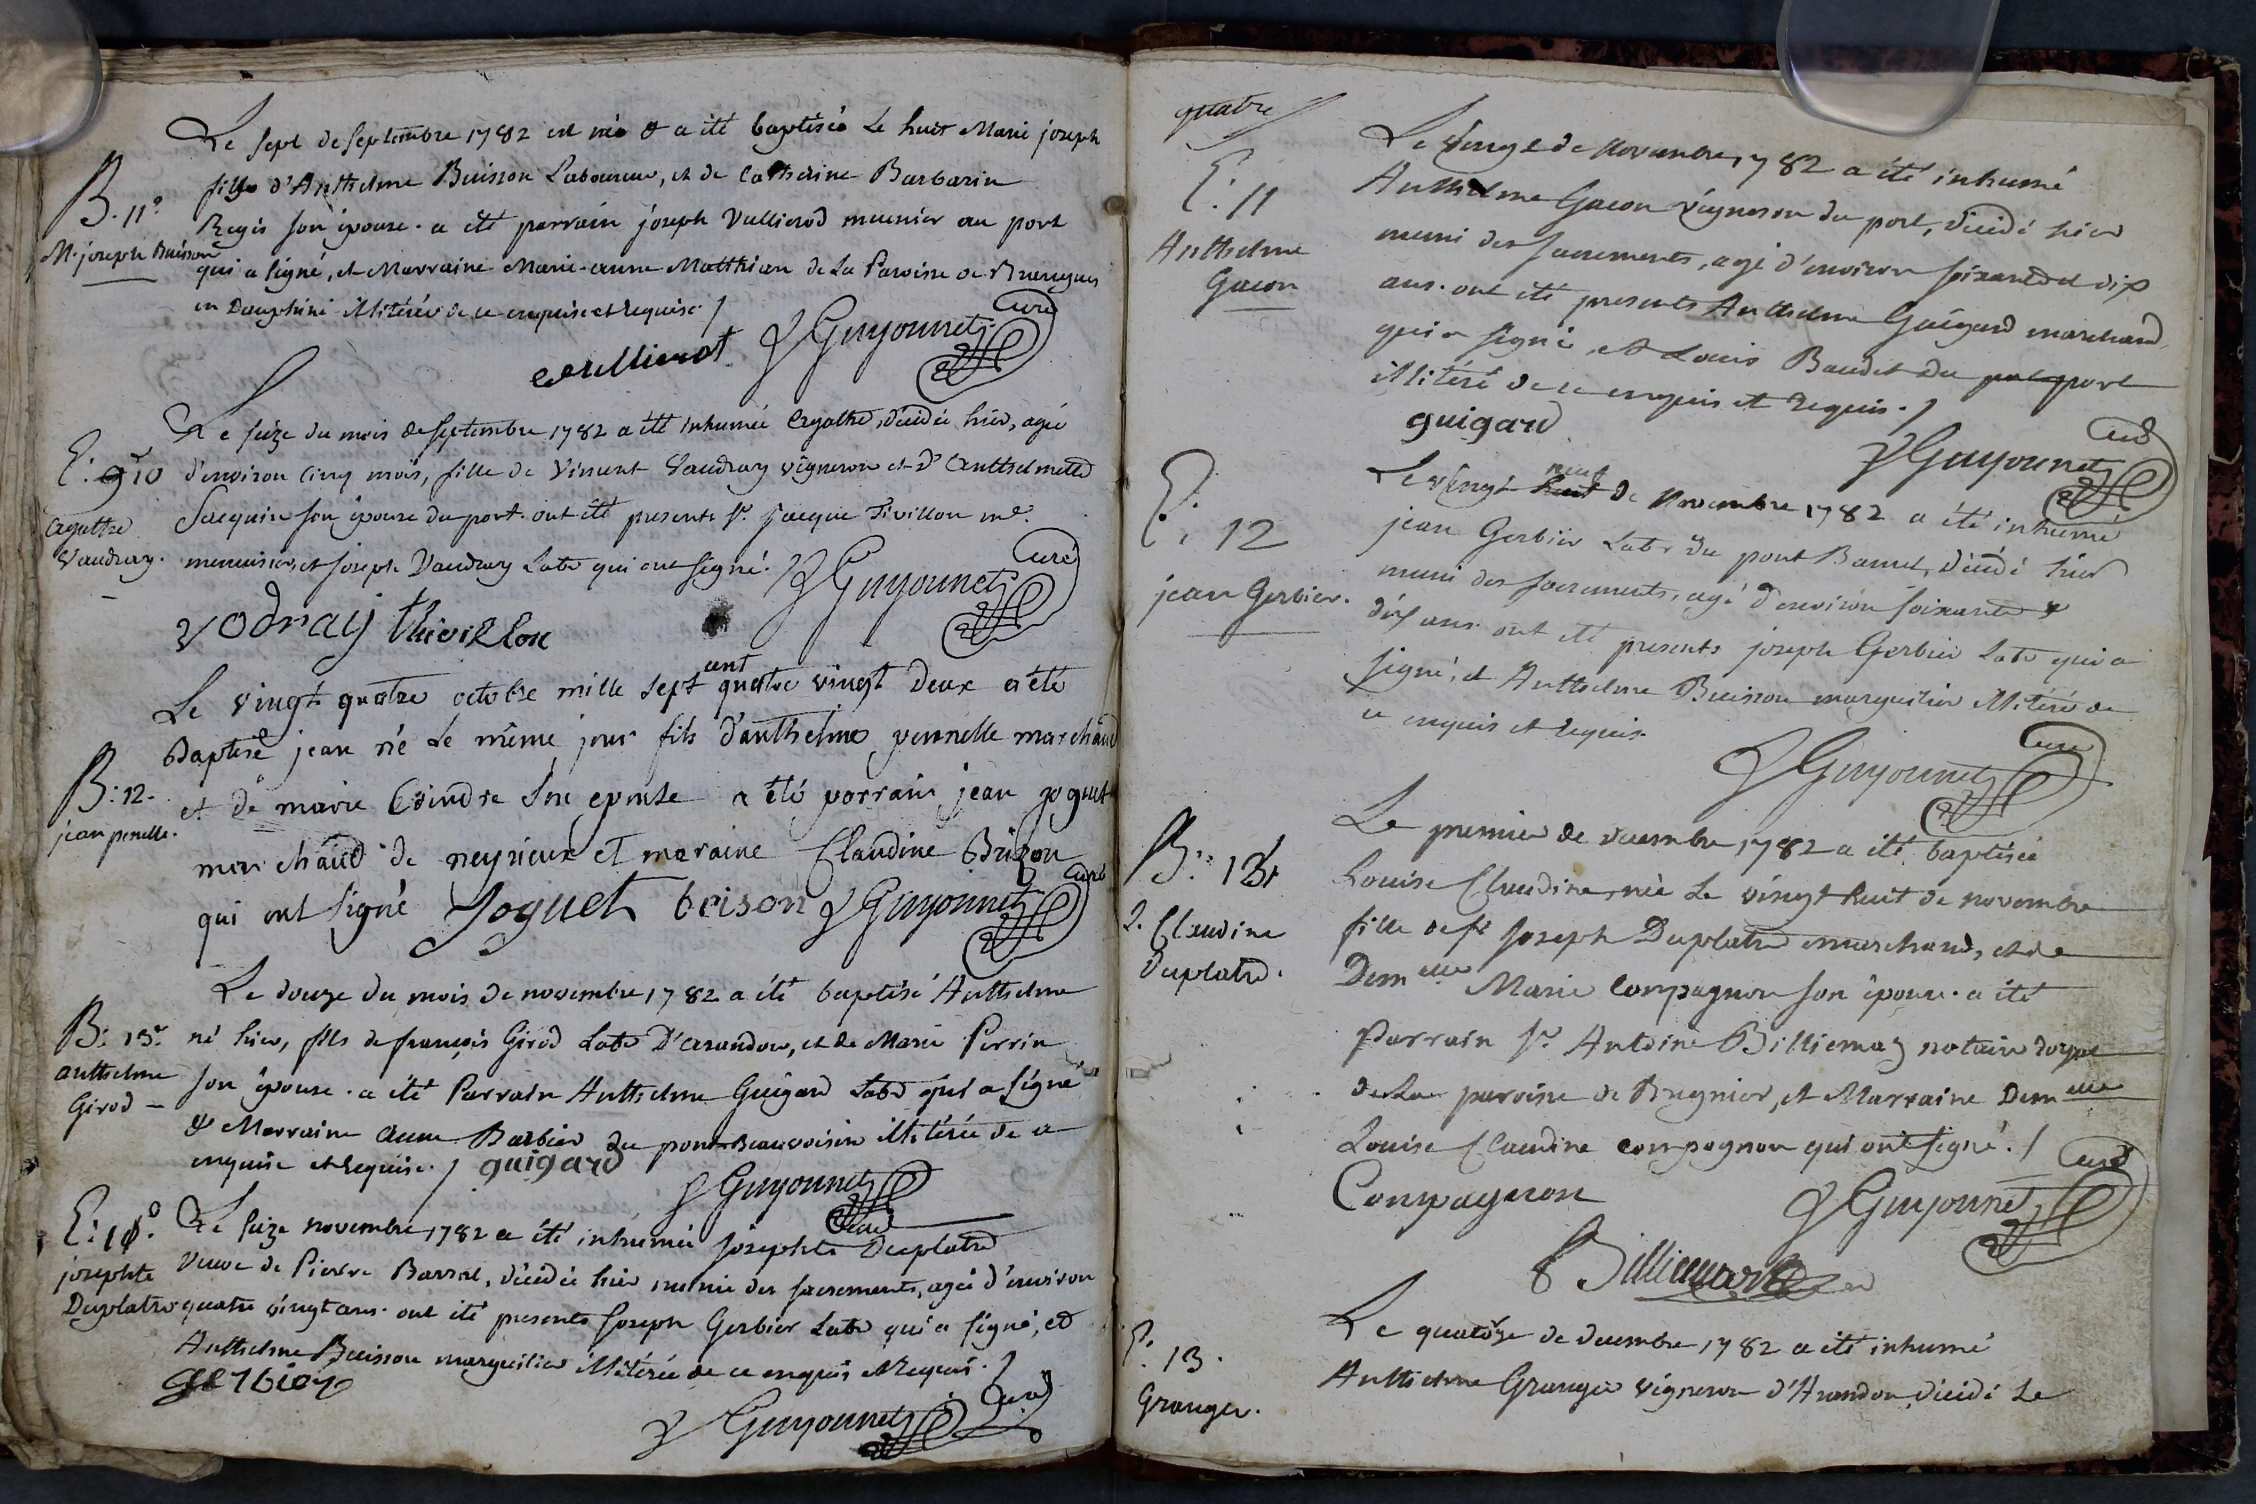 Le sept de septembre 1782 est née & a été baptisée Le huit Marie joseph
fille d'Anthelme Buisson Laboureur, et de Catherine Barbarin
B. 11e
Regis son épouse. a été parrain joseph Vullierod meunier au port
M. joseph Buisson
qui a signé, et Marraine Marie-anne Matthian de La Paroisse de
en Dauphiné illitérée de ce enquise et requise. /
vullierot Guyonnet Curé
Le seize du mois de septembre 1782 a été inhumée Agathe, décédée hier, agée
E: 10
d'environ cinq mois, fille de Vincent Vaudray vigneron et d'Anthelmette
Agathe
Jacquin son épouse du port. ont été presents Sr. jacque Tivillon me.
Vaudray.
menuisier, et joseph Vaudray Labr qui ont signé. Guyonnet Curé
vodray thivillon
Le vingt quatre octobre mille sept cent quatre vingt Deux a été
Baptisé jean né Le même jour fils d'anthelme pennelle marchand
B: 12.
jean penelle.
et de marie Coindre son epouse a été parrain jean joguet
marchand de neyrieux et maraine Claudine Brizon
qui ont signé Joguet brison Guyonnet Curé
Le douze du mois de novembre 1782 a été baptisé Anthelme
B: 13e
né hier, fils de françois Girod Labr D'arandon, et de Marie Perrin
anthelme
son épouse. a été Parrain Anthelme Guigard Labr qui a signé
Girod
& Marraine Anne Barbier du pont Beauvoisin illitérée de ce
enquise et requise. / guigard
Guyonnet Curé
E: 10
Le seize novembre 1782 a été inhumée josephte Duplatre
josephte
Veuve de Pierre Barral, décédée hier munie des sacrements, agée d'environ
Duplatre
quatre vingt ans. ont été presents joseph Gerbier Labr qui a signé, et
Anthelme Buisson marguilier illitérée de ce enquis et Requis. /
gerbier
Guyonnet Curé
quatre
Le vingt de Novembre 1782 a été inhumé
E: 11
Anthelme Gacon vigneron du port, décédé hier
Anthelme
Gacon
muni des sacrements, agé d'environ soixante et dix
ans. ont été presents Anthelme Guigard marchand
qui a signé, et Louis Baudet du port
illitéré de ce enquis et requis. /
guigard
Guyonnet Curé
Le vingt huit neuf de Novembre 1782 a été inhumé
E: 12
jean Gerbier Labr du pont Bancet, décédé hier
jean Gerbier.
muni des sacrements, agé d'environ soixante &
dix ans. ont été presents joseph Gerbier Labr qui a
signé, et Anthelme Buisson marguilier illitéré de
ce enquis et requis.
Guyonnet Curé
Le premier de decembre 1782 a été baptisée
B: 13
Louise Claudine, née Le vingt huit de novembre
L. Claudine
fille de Sr joseph Duplatre marchand, et de
Duplatre.
Demelle Marie Compagnon son épouse. a été
Parrain Sr. Antoine Billiemaz notaire royal
de La paroisse de Bregnier, et Marraine Demelle
Louise Claudine compagnon qui ont signé. /
Compagnon Guyonnet Curé
Billiemaz
Le quatorze de decembre 1782 a été inhumé
E. 13.
Granger.
Anthelme Granger vigneron d'Arandon, décédé Le